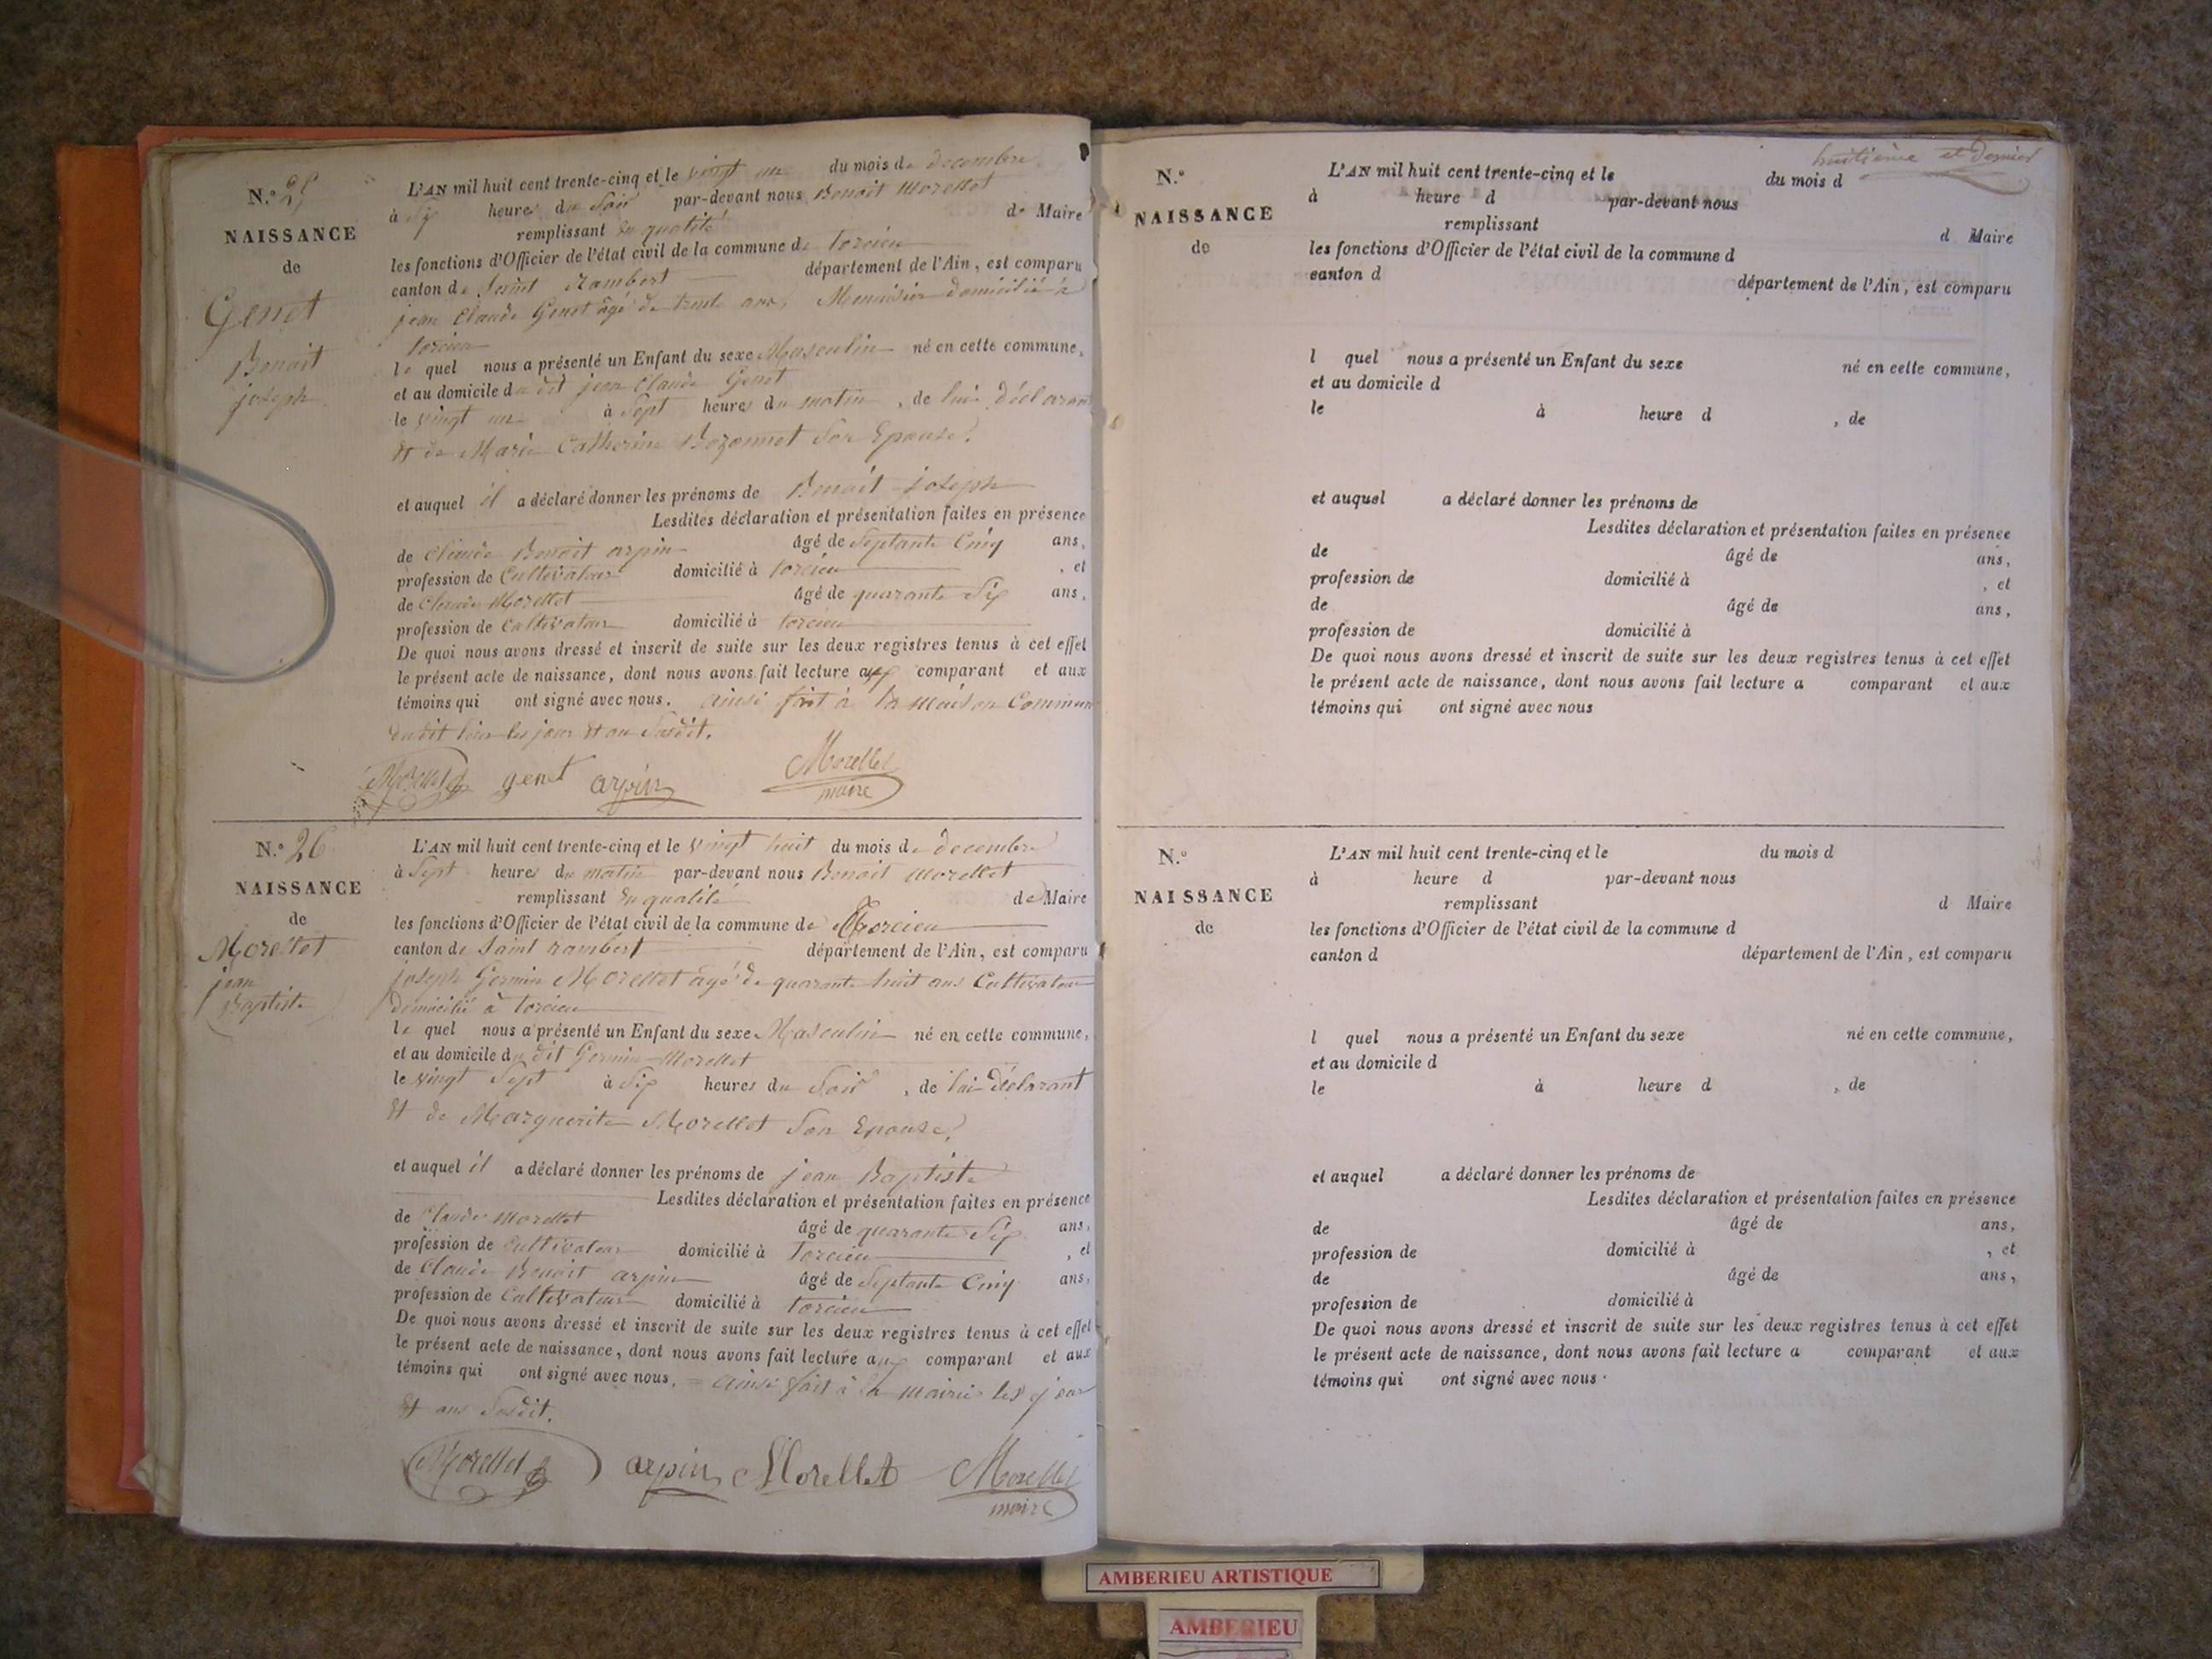 N.o 25
NAISSANCE
de
Genet
Benoit
joseph
L'AN mil huit cent trente-cinq et le vingt un du mois de decembre
à Six heures du Soir par-devant nous Benoit Morellet
remplissant En qualité de Maire
les fonctions d'Officier de l'état civil de la commune de torcieu
canton de Saint Rambert département de l'Ain, est comparu
jean Claude Genet âgé de trente ans, Menuisier domicilié à
torcieu
le quel nous a présenté un Enfant du sexe Masculin né en cette commune,
et au domicile du dit jean Claude Genet
le vingt un à Sept heures du matin, de lui déclarant
Et de Marie Catherine Bozonnet Son Epouse.
et auquel il a déclaré donner les prénoms de Benoit joseph
Lesdites déclaration et présentation faites en présence
de Claude Benoit arpin âgé de Septante Cinq ans,
profession de Cultivateur domicilié à torcieu, et
de Claude Morellet âgé de quarante Six ans,
profession de Cultivateur domicilié à torcieu
De quoi nous avons dressé et inscrit de suite sur les deux registres tenus à cet effet
le présent acte de naissance, dont nous avons fait lecture aux comparant et aux
témoins qui ont signé avec nous. ainsi fait à la maison Commune
dudit lieu les jour Et an Susdit.
Morellet genet arpin Morellet
maire
N.o 26
NAISSANCE
de
Morellet
jean
Baptiste
L'AN mil huit cent trente-cinq et le vingt huit du mois de decembre
à Sept heures du matin par-devant nous Benoit Morellet
remplissant En qualité de Maire
les fonctions d'Officier de l'état civil de la commune de Torcieu
canton de Saint rambert département de l'Ain, est comparu
joseph Germin Morellet âgé de quarante huit ans Cultivateur
domicilié à torcieu
le quel nous a présenté un Enfant du sexe Masculin né en cette commune,
et au domicile du dit Germin Morellet
le vingt Sept à Six heures du Soir, de lui Déclarant
Et de Marguerite Morellet Son Epouse.
et auquel il a déclaré donner les prénoms de jean Baptiste
Lesdites déclaration et présentation faites en présence
de Claude Morellet âgé de quarante Six ans,
profession de Cultivateur domicilié à Torcieu, et
de Claude Benoit arpin âgé de Septante Cinq ans,
profession de Cultivateur domicilié à torcieu
De quoi nous avons dressé et inscrit de suite sur les deux registres tenus à cet effet
le présent acte de naissance, dont nous avons fait lecture aux comparant et aux
témoins qui ont signé avec nous. = ainsi fait à la mairie les jour
Et ans Susdit.
Morellet arpin Morellet Morellet
maire
huitième et Dernier
N.o
NAISSANCE
de
L'AN mil huit cent trente-cinq et le du mois d
à heure d par-devant nous
remplissant d Maire
les fonctions d'Officier de l'état civil de la commune d
canton d département de l'Ain, est comparu
l quel nous a présenté un Enfant du sexe né en cette commune,
et au domicile d
le à heure d , de
et auquel a déclaré donner les prénoms de
Lesdites déclaration et présentation faites en présence
de âgé de ans,
profession de domicilié à , et
de âgé de ans,
profession de domicilié à
De quoi nous avons dressé et inscrit de suite sur les deux registres tenus à cet effet
le présent acte de naissance, dont nous avons fait lecture a comparant et aux
témoins qui ont signé avec nous
N.o
NAISSANCE
de
L'AN mil huit cent trente-cinq et le du mois d
à heure d par-devant nous
remplissant d Maire
les fonctions d'Officier de l'état civil de la commune d
canton d département de l'Ain, est comparu
l quel nous a présenté un Enfant du sexe né en cette commune,
et au domicile d
le à heure d , de
et auquel a déclaré donner les prénoms de
Lesdites déclaration et présentation faites en présence
de âgé de ans,
profession de domicilié à , et
de âgé de ans,
profession de domicilié à
De quoi nous avons dressé et inscrit de suite sur les deux registres tenus à cet effet
le présent acte de naissance, dont nous avons fait lecture a comparant et aux
témoins qui ont signé avec nous.
AMBERIEU ARTISTIQUE
AMBERIEU